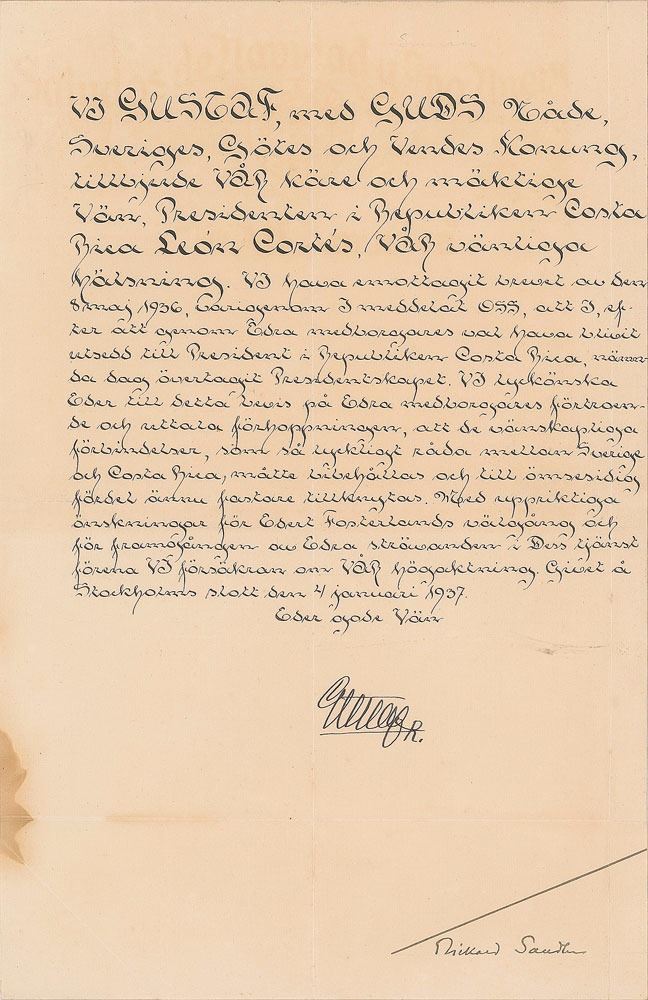 VI GUSTAF, med GUDS Nåde,
Sveriges, Götes och Vendes Konung,
tillbjude VÅR käre och mäktige
Vän, Presidenten i Republiken Costa
Rica León Cortés, VÅR vänliga
hälsning. VI hava emottagit brevet av den
8 maj 1936, varigenom I meddelat OSS, att I, ef-
ter att genom Edra medborgares val hava blivit
utsedd till President i Republiken Costa Rica, nämn-
da dag övertagit Presidentskapet. VI lyckönska
Eder till detta bevis på Edra medborgares förtroen-
de och uttala förhoppningen, att de vänskapliga
förbindelser, som så lyckligt råda mellan Sverige
och Costa Rica, måtte bibehållas och till ömsesidig
fördel ännu fastare tillknytas. Med uppriktiga
önskningar för Edert Fosterlands välgång och
för framgången av Edra strävanden i Dess tjänst
förena VI försäkran om VÅR högaktning. Givet å
Stockholms slott den 4 januari 1937.
Eder gode Vän
Gustaf R.
Rickard Sandler